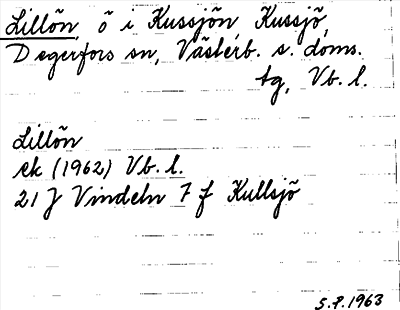 Lillön, ö i Kussjön Kussjö,
Degerfors sn, Västerb. s. doms.
tg, Vb. l.
Lillön
ek (1962) Vb. l.
21 J Vindeln 7 f Kullsjö
5.7.1963